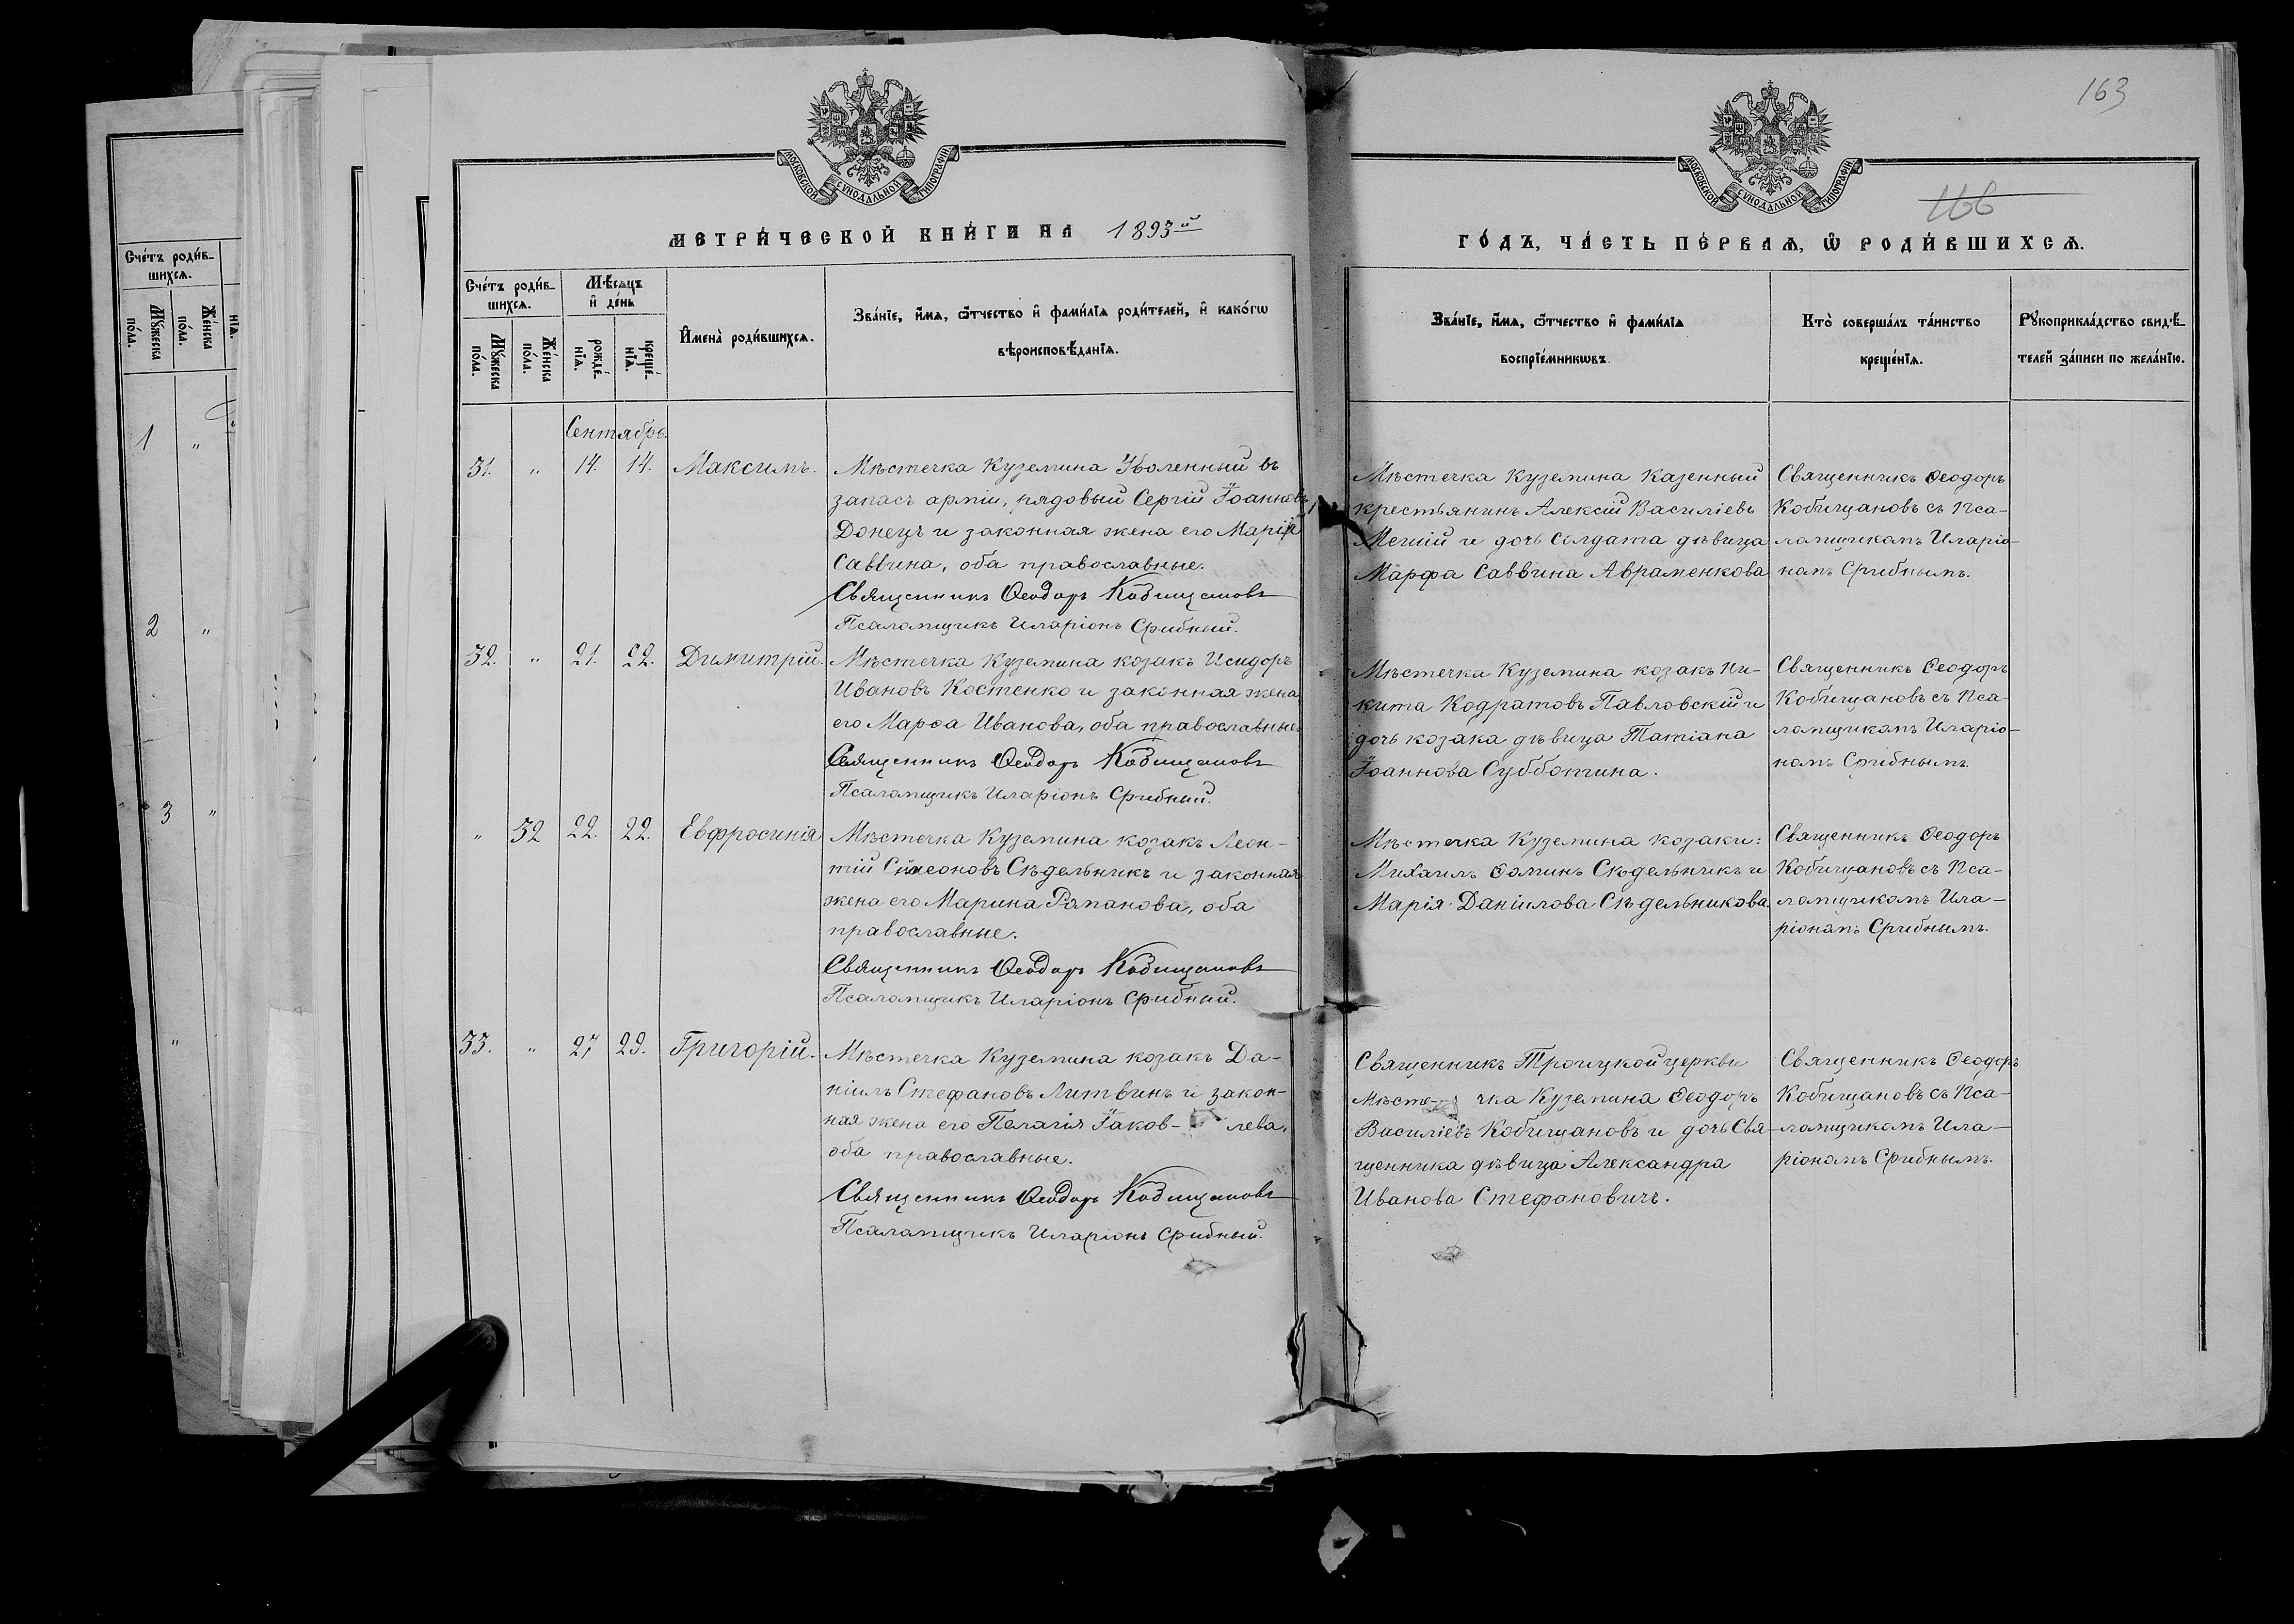 163
166
МОСКОВСКОЙ СѴНОДАЛЬНОЙ ТИПОГРАФІИ
МОСКОВСКОЙ СѴНОДАЛЬНОЙ ТИПОГРАФІИ
МЕТРИ́ЧЕСКОЙ КНИ́ГИ НА 1893й
ГО́ДЪ, ЧА́СТЬ ПЕ́РВАѦ, Ѿ РОДИ́ВШИХСѦ.
Сче́тъ роди́в-
шихсѧ.
Мꙋ́жеска
по́ла.
Же́нска
по́ла.
нїѧ.
1 "
2 "
3 "
"
Сче́тъ роди́в-
шихсѧ.
Мꙋ́жеска
по́ла.
Же́нска
по́ла.
Мѣ́сѧцъ
и҆ де́нь
рожде́-
нїѧ.
креще́-
нїѧ.
И҆мена̀ роди́вшихсѧ.
Зва́нїе, и҆́мѧ, ѻ҆́тчество и҆ фами́лїѧ роди́телей, и҆ како́гѡ
вѣроисповѣ́данїѧ.
Зва́нїе, и҆́мѧ, ѻ҆́тчество и҆ фами́лїѧ
воспрїе́мникѡвъ.
Кто̀ соверша́лъ та́инство
креще́нїѧ.
Рꙋкоприкла́дство свидѣ́-
телей за́писи по жела́нїю.
Сентябрь.
31. " 14. 14. Максимъ.
Мѣстечка Куземина Уволенный въ
запасъ арміи, рядовый Сергій Іоанновъ
Донецъ и законная жена его Марія
Саввина, оба православные.
Священникъ Ѳеодоръ Кобищановъ
Псаломщикъ Иларіонъ Срибный.
Мѣстечка Куземина Казенный
крестьянинъ Алексій Василіевъ
и дочь Солдата дѣвица
Марфа Саввина Авраменкова
Священникъ Ѳеодоръ
Кобищановъ съ Пса-
ломщикомъ Иларіо-
номъ Срибнымъ.
32. " 21. 22. Димитрій.
Мѣстечка Куземина козакъ Исидоръ
Ивановъ Костенко и законная жена
его Марѳа Иванова, оба православные.
Священникъ Ѳеодоръ Кобищановъ
Псаломщикъ Иларіонъ Срибный.
Мѣстечка Куземина козакъ Ни-
кита Кодратовъ Павловскій и
дочь козака дѣвица Татіана
Іоаннова Субботина.
Священникъ Ѳеодоръ
Кобищановъ съ Пса-
ломщикомъ Иларіо-
номъ Срибнымъ
" 32 22. 22. Евфросинія
Мѣстечка Куземина козакъ Леон-
тій Симеоновъ Сѣдельникъ и законная
жена его Марина Романова, оба
православные.
Священникъ Ѳеодоръ Кобищановъ
Псаломщикъ Иларіонъ Срибный.
Мѣстечка Куземина козаки:
Михаилъ Ѳоминъ Сѣдельникъ и
Марія Даніилова Сѣдельникова.
Священникъ Ѳеодоръ
Кобищановъ съ Пса-
ломщикомъ Ила-
ріономъ Срибнымъ.
33. " 27 29. Григорій.
Мѣстечка Куземина козакъ Да-
ніилъ Стефановъ Литвинъ и закон-
ная жена его Пелагія Іаков- лева,
оба православные.
Священникъ Ѳеодоръ Кобищановъ
Псаломщикъ Иларіонъ Срибный.
Священникъ Троицкой церкви
Мѣсте- чка Куземина Ѳеодоръ
Василіевъ Кобищановъ и дочь Свя-
щенника дѣвица Александра
Иванова Стефановичъ.
Священникъ Ѳеодоръ
Кобищановъ съ Пса-
ломщикомъ Ила-
ріономъ Срибнымъ.